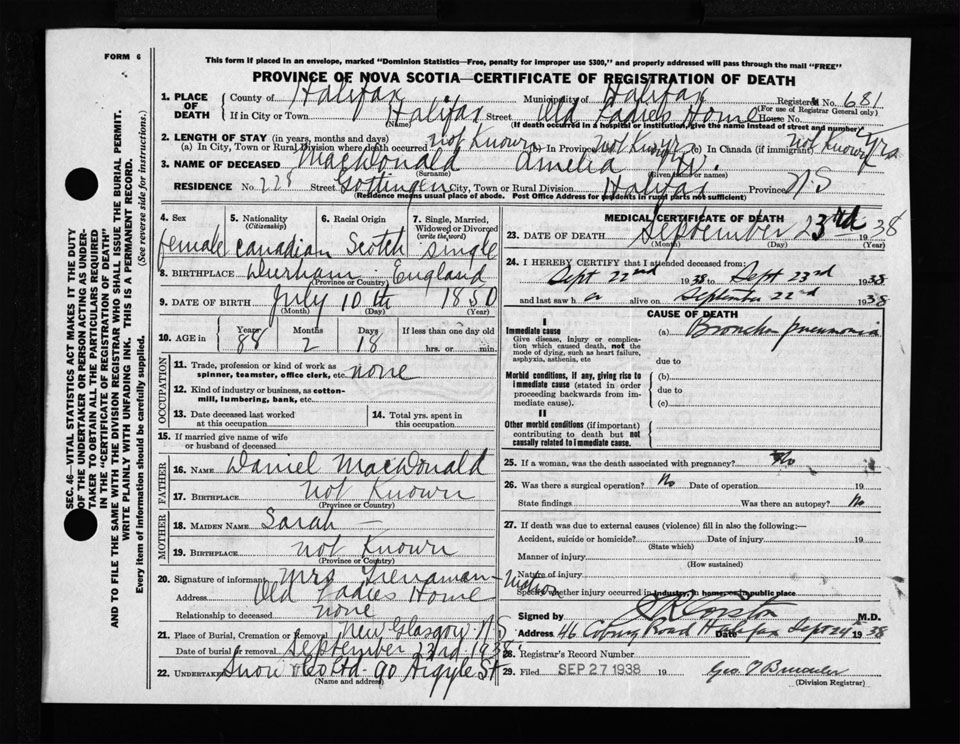 FORM 6
This form if placed in an envelope, marked "Dominion Statistics—Free, penalty for improper use $300," and properly addressed will pass through the mail "FREE"
PROVINCE OF NOVA SCOTIA—CERTIFICATE OF REGISTRATION OF DEATH
1. PLACE OF DEATH County of Halifax Municipality of Halifax Registered No. 681
(For use of Registrar General only)
If in City or Town Halifax Street Old Ladies Home House No.
(Name) (If death occurred in a hospital or institution, give the name instead of street and number)
2. LENGTH OF STAY (in years, months and days)
(a) In City, Town or Rural Division where death occurred not Known (b) In Province not Known (c) In Canada (if immigrant) not Known yrs
3. NAME OF DECEASED MacDonald Amelia W.
(Surname) (Given or names)
RESIDENCE No. 228 Street Gottingen City, Town or Rural Division Halifax Province NS
(Residence means usual place of abode. Post Office Address for residents in rural parts not sufficient)
4. Sex female
5. Nationality (Citizenship) Canadian
6. Racial Origin Scotch
7. Single, Married, Widowed or Divorced (write the word) single
8. BIRTHPLACE Durham - England
(Province or Country)
9. DATE OF BIRTH July 10th 1850
(Month) (Day) (Year)
10. AGE in Years 88 Months 2 Days 18 If less than one day old hrs. or min.
OCCUPATION
11. Trade, profession or kind of work as spinner, teamster, office clerk, etc. none
12. Kind of industry or business, as cotton-mill, lumbering, bank, etc.
13. Date deceased last worked at this occupation
14. Total yrs. spent in this occupation
15. If married give name of wife or husband of deceased
FATHER
16. NAME Daniel MacDonald
17. BIRTHPLACE not Known
(Province or Country)
MOTHER
18. MAIDEN NAME Sarah —
19. BIRTHPLACE not Known
(Province or Country)
20. Signature of informant Mrs Trenaman - Matron
Address Old Ladies Home
Relationship to deceased none
21. Place of Burial, Cremation or Removal New Glasgow N S
Date of burial or removal September 23rd 1938
22. UNDERTAKER Snow & Co Ltd - 90 Argyle St
(Name and address)
MEDICAL CERTIFICATE OF DEATH
23. DATE OF DEATH September 23rd 1938
(Month) (Day) (Year)
24. I HEREBY CERTIFY that I attended deceased from:
Sept 22nd 1938 to Sept 23rd 1938
and last saw her alive on September 22nd 1938
CAUSE OF DEATH
I
Immediate cause
Give disease, injury or complication which caused death, not the mode of dying, such as heart failure, asphyxia, asthenia, etc
(a) Broncho pneumonia
due to
Morbid conditions, if any, giving rise to immediate cause (stated in order proceeding backwards from immediate cause).
(b)
due to
(c)
II
Other morbid conditions (if important) contributing to death but not causally related to immediate cause.
25. If a woman, was the death associated with pregnancy? No
26. Was there a surgical operation? No Date of operation 19
State findings Was there an autopsy? No
27. If death was due to external causes (violence) fill in also the following:—
Accident, suicide or homicide? Date of injury 19
(State which)
Manner of injury
(How sustained)
Nature of injury
Specify whether injury occurred in industry, in home, or in public place
Signed by M.D.
Address 46 Coburg Road Halifax Date Sept 24th 1938
28. Registrar's Record Number
29. Filed SEP 27 1938 19
(Division Registrar)
SEC. 46—VITAL STATISTICS ACT MAKES IT THE DUTY OF THE UNDERTAKER OR PERSON ACTING AS UNDERTAKER TO OBTAIN ALL THE PARTICULARS REQUIRED IN THE "CERTIFICATE OF REGISTRATION OF DEATH" AND TO FILE THE SAME WITH THE DIVISION REGISTRAR WHO SHALL ISSUE THE BURIAL PERMIT.
WRITE PLAINLY WITH UNFADING INK. THIS IS A PERMANENT RECORD.
Every item of information should be carefully supplied. (See reverse side for instructions.)